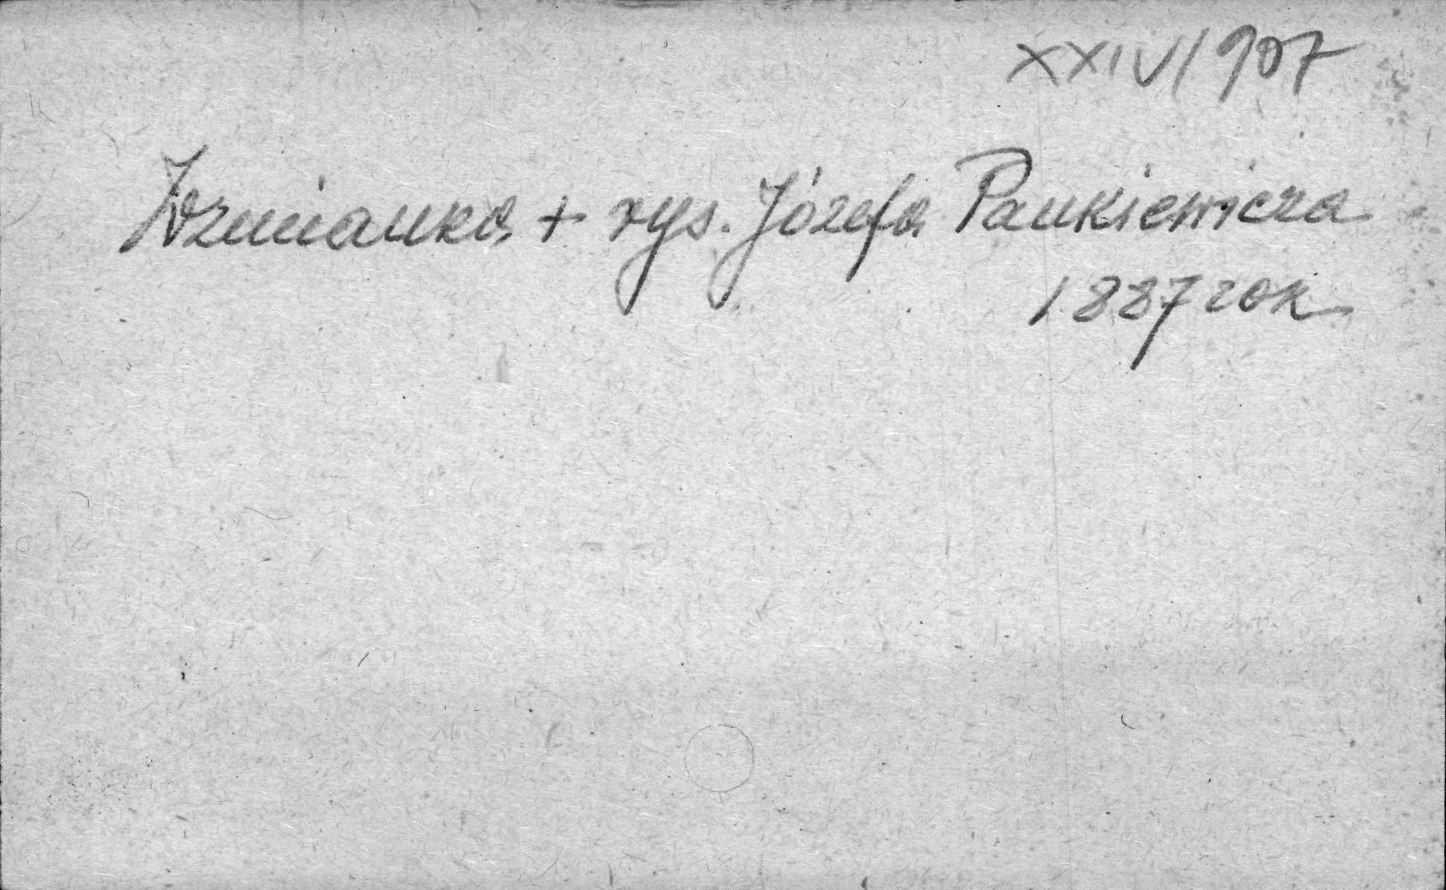 XXIV/907
Wzmianka + rys. Józefa Pankiewicza
1887 rok